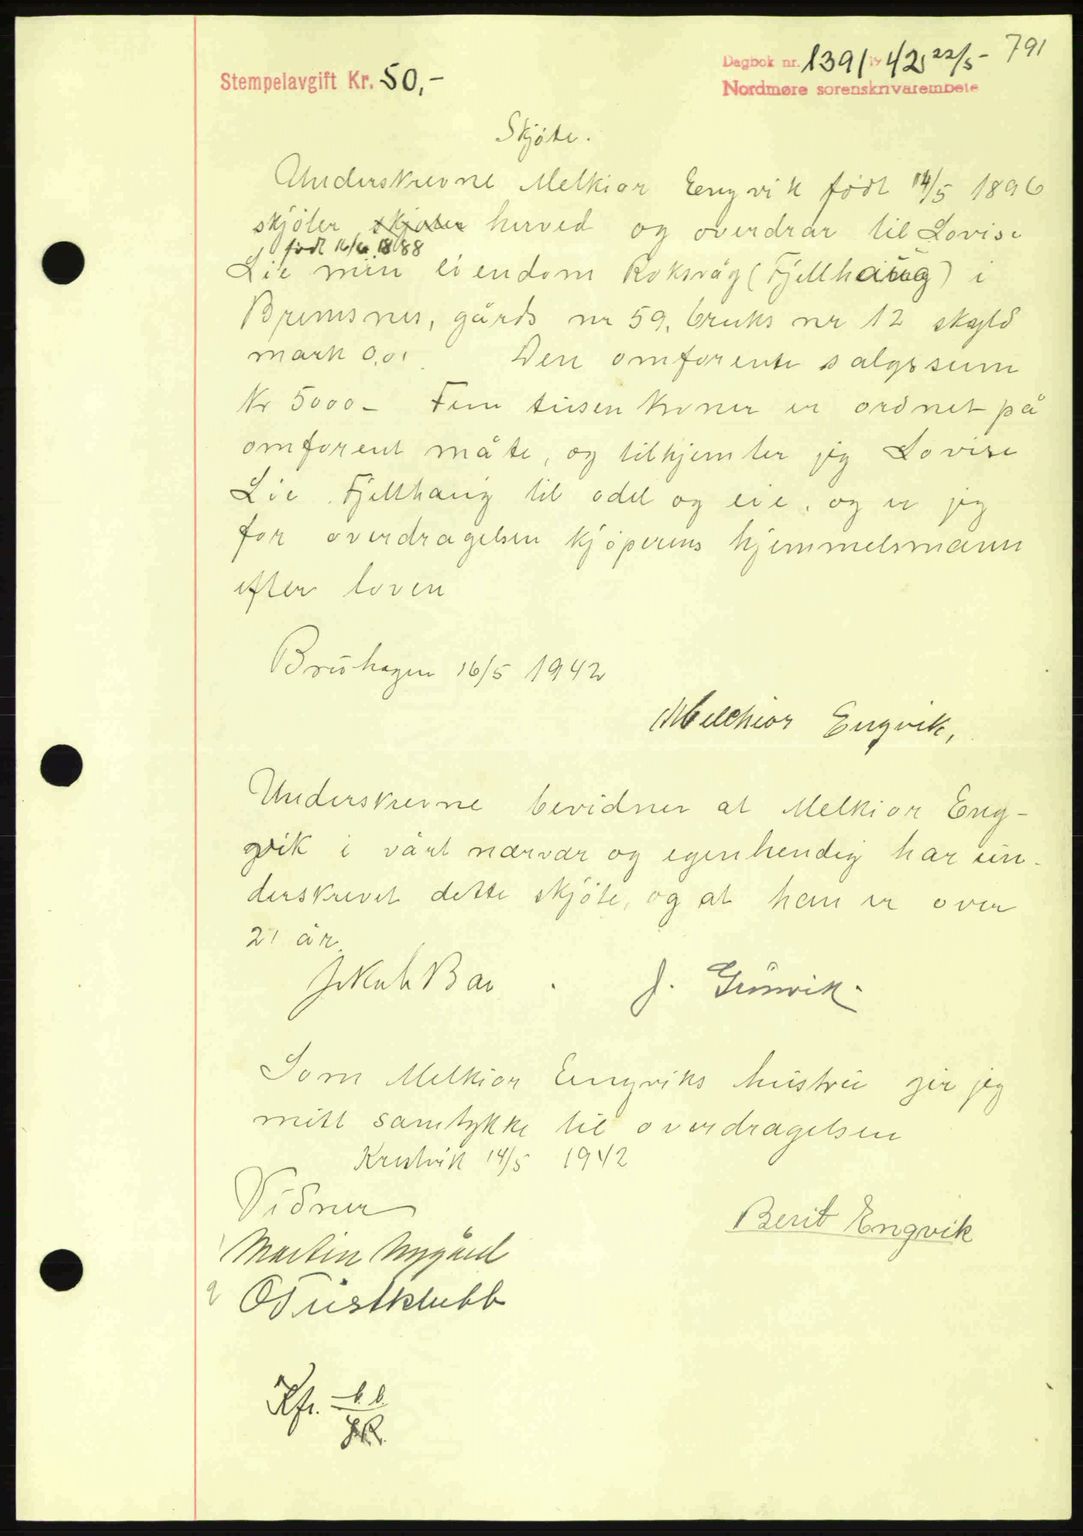 791
Dagbok nr. 1391 19 42 22/5-
Stempelavgift Kr. 50,-
Nordmøre sorenskrivarembete
Skjöte.
Underskrevne Melkior Engvik født 14/5 1896
skjöter skjøter herved og overdrar til Lovise
født 16/6 1888
Lie min eiendom Roksvåg (Fjellhaug) i
Bremsnes, gårds nr 59, bruks nr 12 skyld
mark 0,01 Den omforente salgssum
Kr 5000- Fem tusen kroner er ordnet på
omforent måte, og tilhjemler jeg Lovise
Lie Fjellhaug til odel og eie, og er jeg
for overdragelsen kjöperens hjemmelsmann
efter loven
Bruhagen 16/5 1942
Melchior Engvik,
Underskrevne bevidner at Melkior Eng-
gvik i vårt nærvær og egenhendig har un-
derskrevet dette skjöte, og at han er over
21 år.
Jakob Bae . J. Grönvik.
Som Melkior Engviks hustru gir jeg
mitt samtykke til overdragelsen
Kristvik 14/5 1942
Vidner
Berit Engvik
1 Martin Nygård
2 O Tustklubb
Kfr. b.b.
J.R.